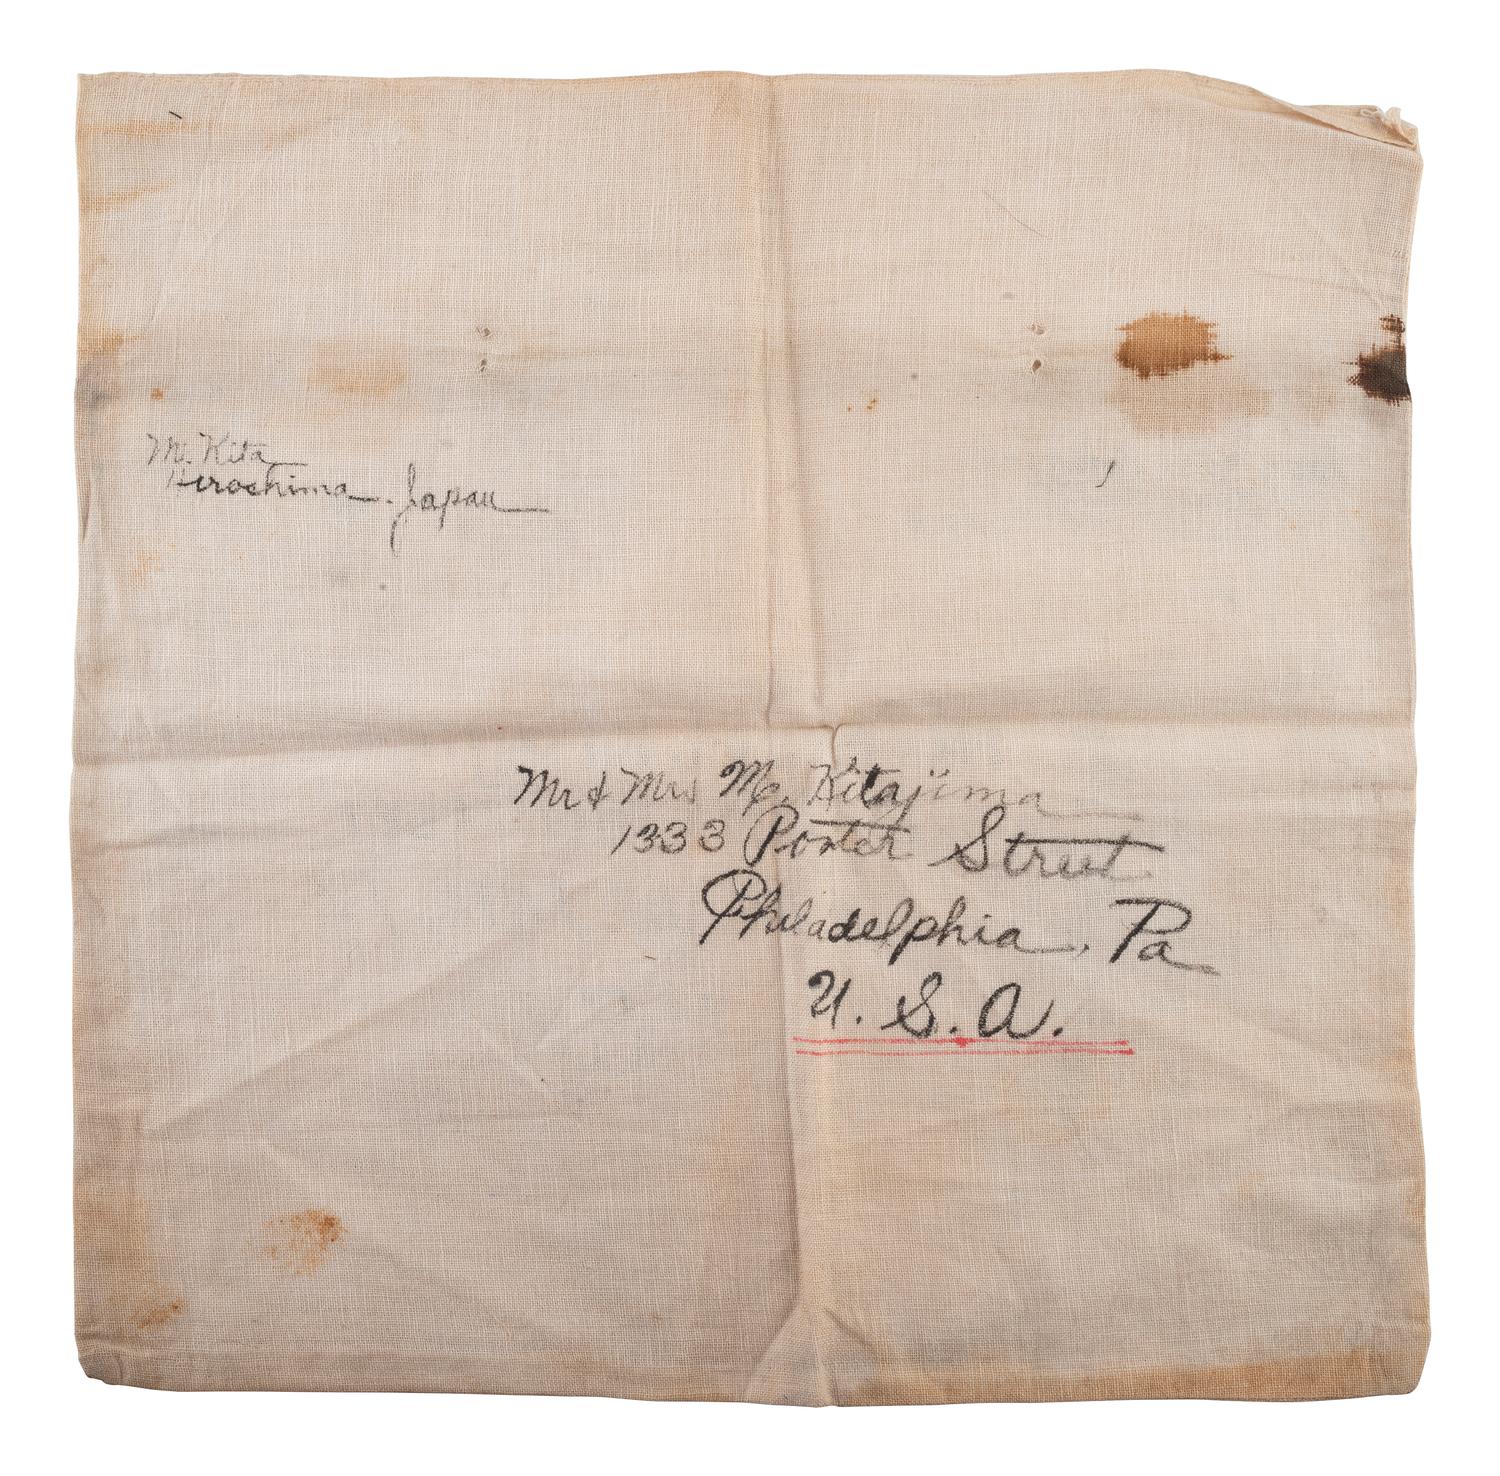 M. Kita
Hiroshima. Japan
Mr & Mrs M. Kitajima
1333 Porter Street
Philadelphia, Pa
U. S. A.